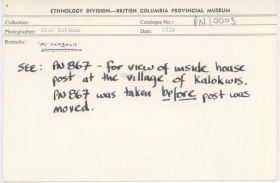 ETHNOLOGY DIVISION—BRITISH COLUMBIA PROVINCIAL MUSEUM
Collection: Catalogue No.: PN 10003
Photographer: Date:
Remarks:
SEE: PN 867 - for view of inside house
post at the village of Kalokwis.
PN 867 was taken before post was
moved.